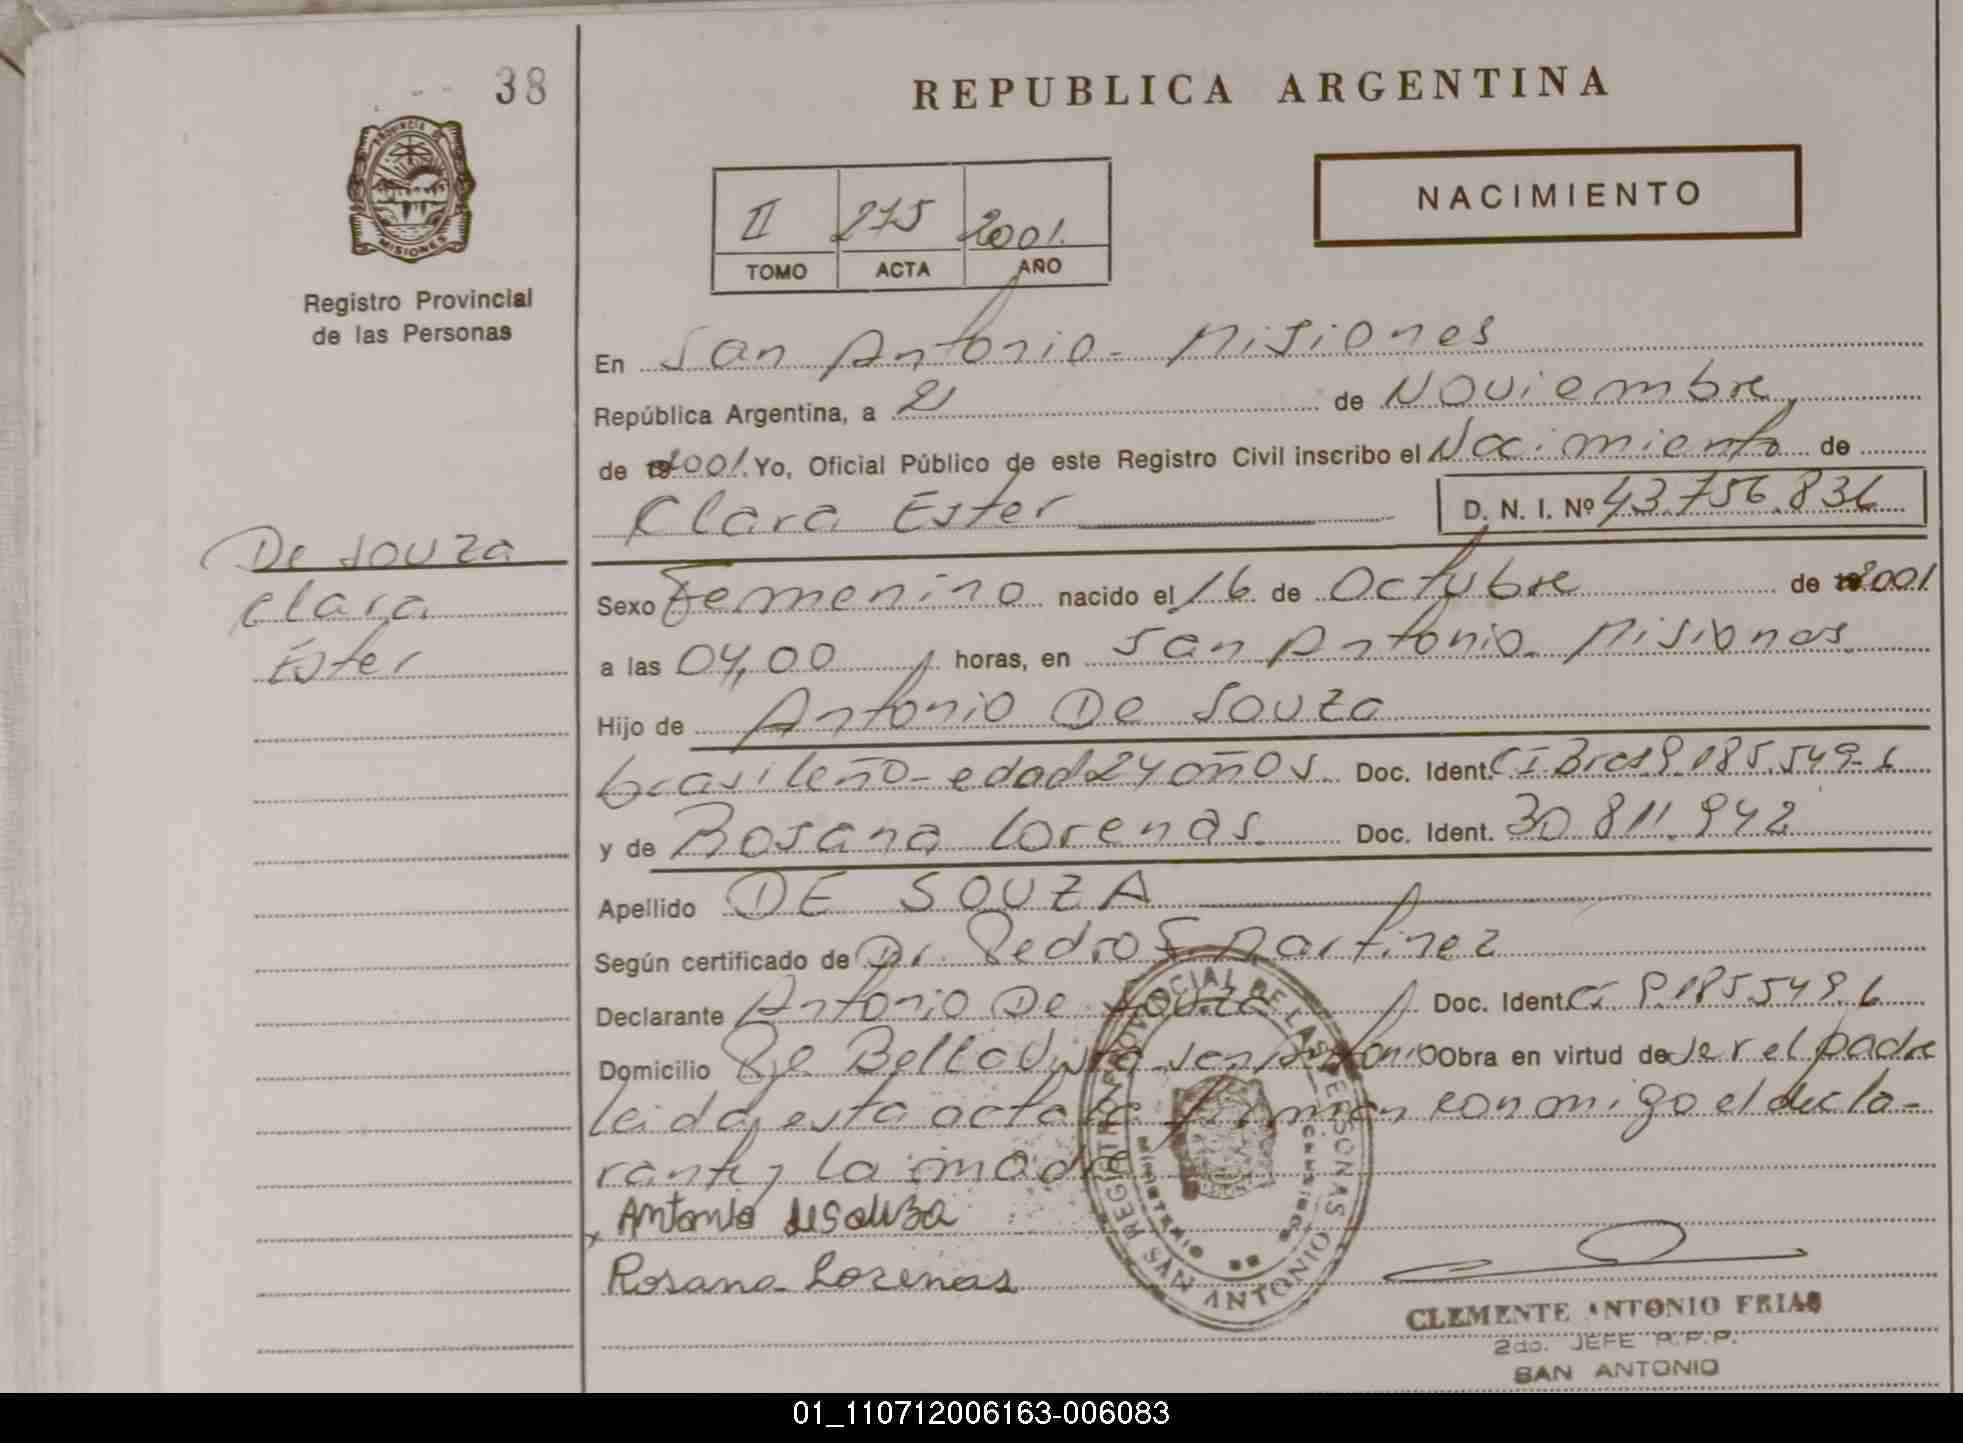 38
REPUBLICA ARGENTINA
PROVINCIA DE
MISIONES
NACIMIENTO
II 275 2001
TOMO ACTA AÑO
Registro Provincial
de las Personas
En San Antonio - Misiones
República Argentina, a 21 de Noviembre
de 2001. Yo, Oficial Público de este Registro Civil inscribo el Nacimiento de
Clara Ester D. N. I. Nº 43.756.836
De Souza
Clara
Ester
Sexo Femenino nacido el 16 de Octubre de 2001
a las 04,00 horas, en San Antonio Misiones
Hijo de Antonio De Souza
brasileño - edad 24 años Doc. Ident. CI Bras 9.185.549-6
y de Rosana Lorenas Doc. Ident. 30.811.942
Apellido DE SOUZA
Según certificado de Dr. Pedro Martinez
Declarante Antonio De Souza Doc. Ident. CI 9.185.549.6
Domicilio Pje Bella Vista - San Antonio Obra en virtud de ser el padre
leida esta acta la firman conmigo el decla-
rante y la madre
Antonio de Souza
Rosana Lorenas
REGISTRO PROVINCIAL DE LAS PERSONAS
SAN ANTONIO
CLEMENTE ANTONIO FRIAS
2do. JEFE R.P.P.
SAN ANTONIO
01_110712006163-006083